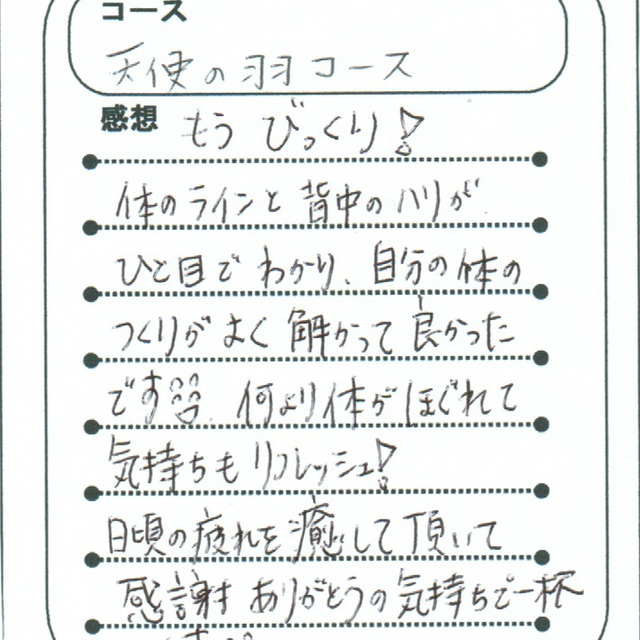 コース
天使の羽コース
感想 もう びっくり！
体のラインと 背中のハリが
ひと目で わかり、自分の体の
つくりが よく 解かって 良かった
です 何より体が ほぐれて
気持ちも リフレッシュ！
日頃の疲れを 癒して 頂いて
感謝 ありがとうの気持ちで一杯